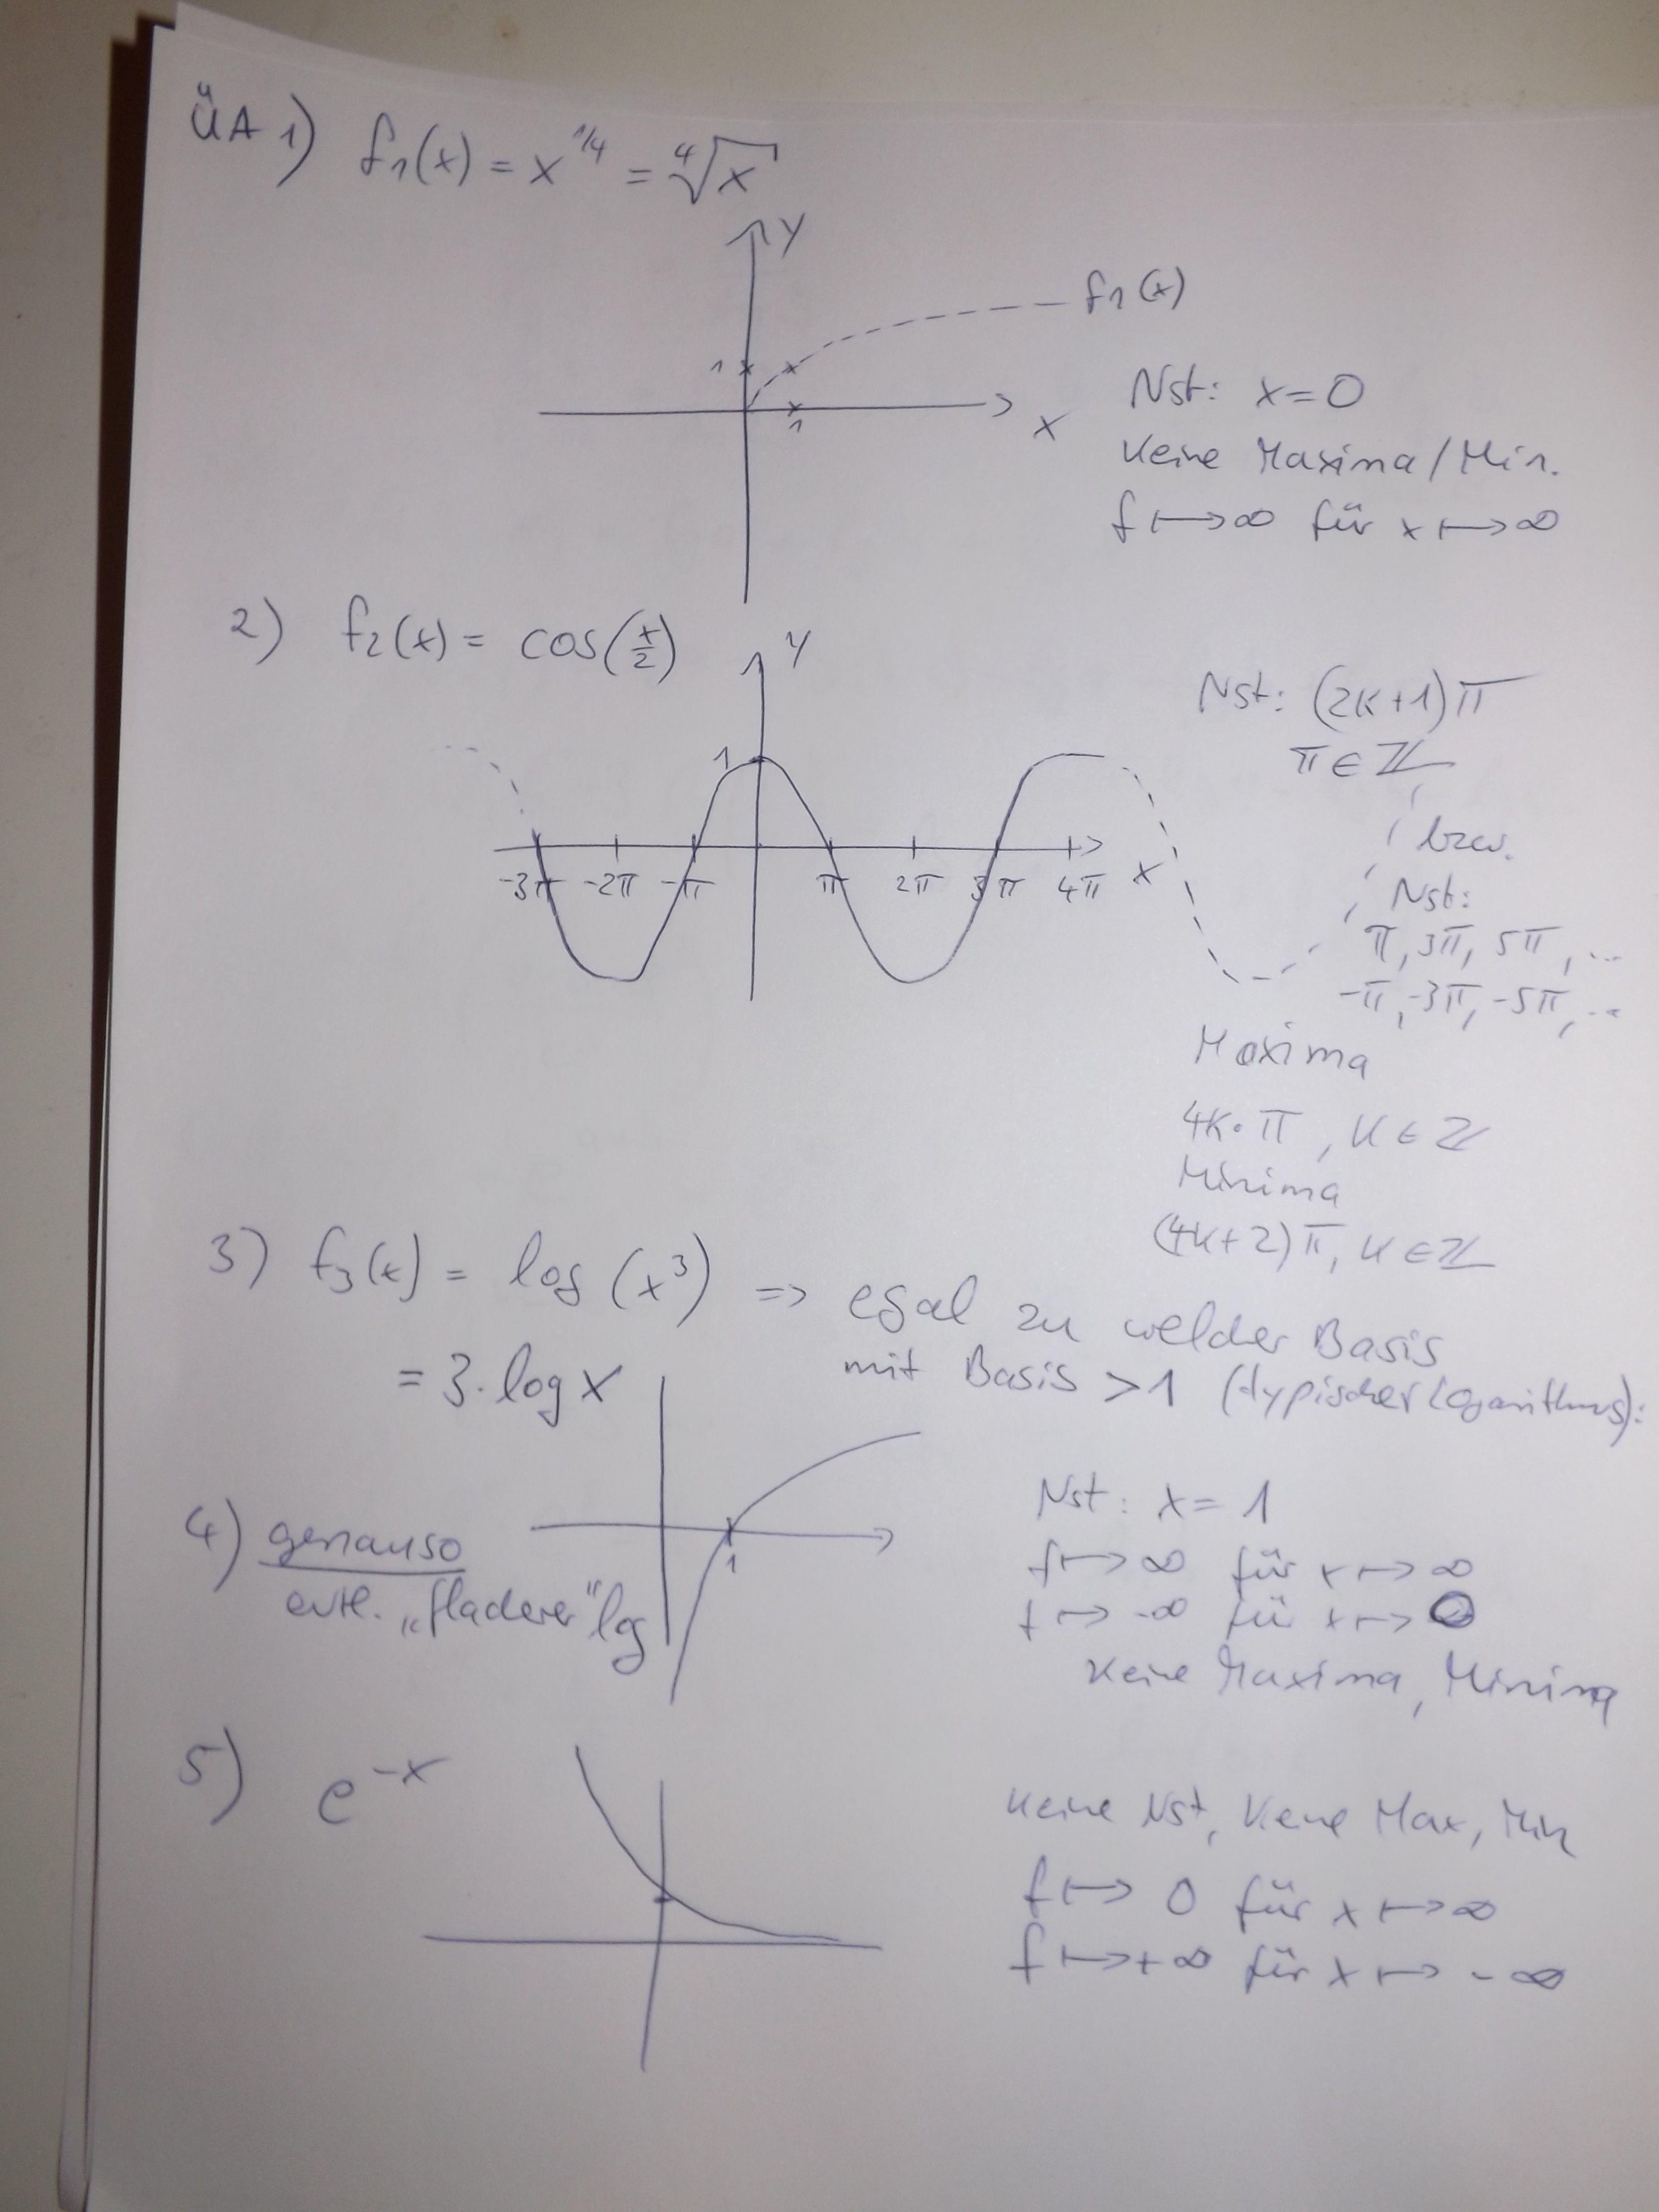 ÜA 1) f₁(x) = x^1/4 = ⁴√x
y
f₁(x)
1
1
x
Nst: x = 0
Keine Maxima/Min.
f ↦ ∞ für x ↦ ∞
2) f₂(x) = cos(x/2)
y
1
-3π -2π -π π 2π 3π 4π x
Nst: (2k+1)π
π ∈ ℤ
bzw.
Nst:
π, 3π, 5π, ...
-π, -3π, -5π, ...
Maxima
4k·π, k ∈ ℤ
Minima
(4k+2)π, k ∈ ℤ
3) f₃(x) = log(x³) => egal zu welcher Basis
= 3·log x
mit Basis >1 (typischer Logarithmus):
1
Nst: x = 1
f ↦ ∞ für x ↦ ∞
f ↦ -∞ für x ↦ 0
Keine Maxima, Minima
4) genauso
evtl. „flacherer" log
5) e^-x
Keine Nst, Keine Max, Min
f ↦ 0 für x ↦ ∞
f ↦ +∞ für x ↦ -∞